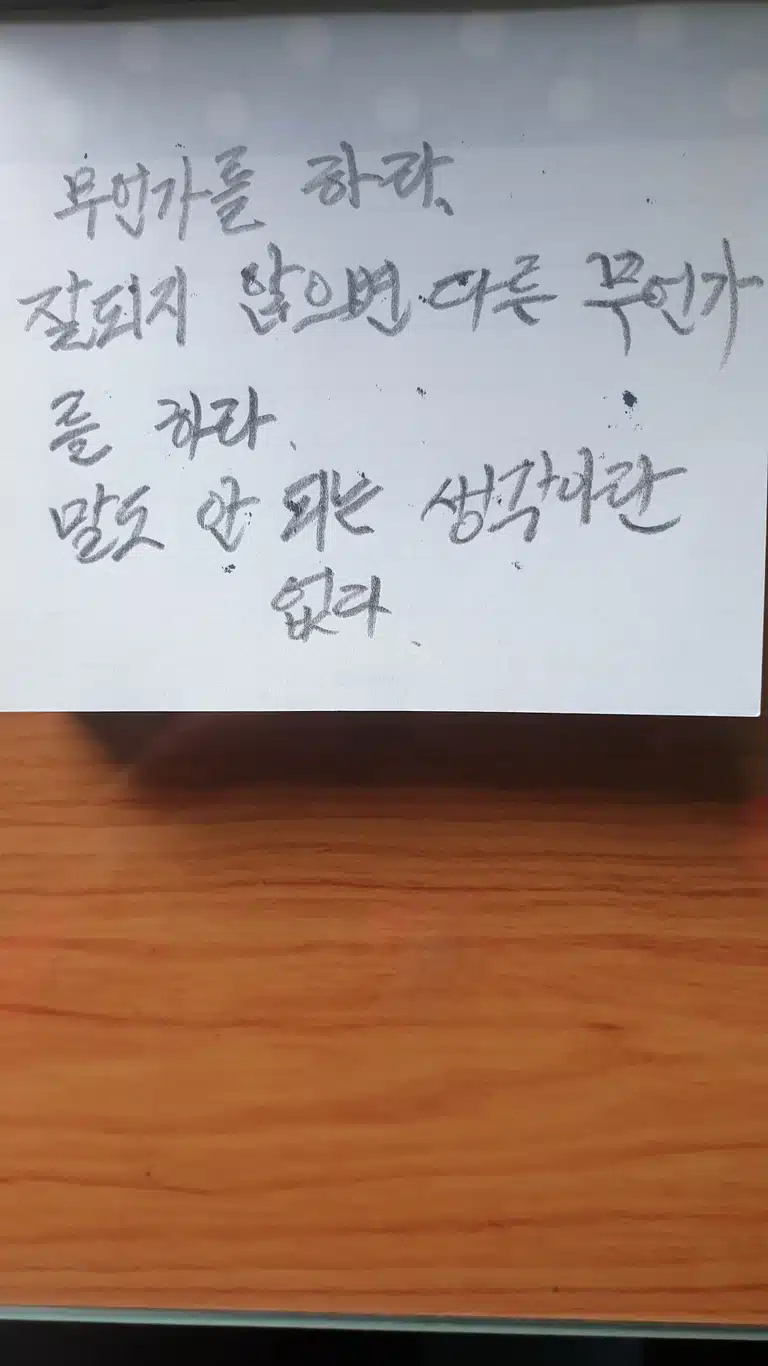 무언가를 하라.
잘되지 않으면 다른 무언가
를 하라.
말도 안 되는 생각이란
없다.